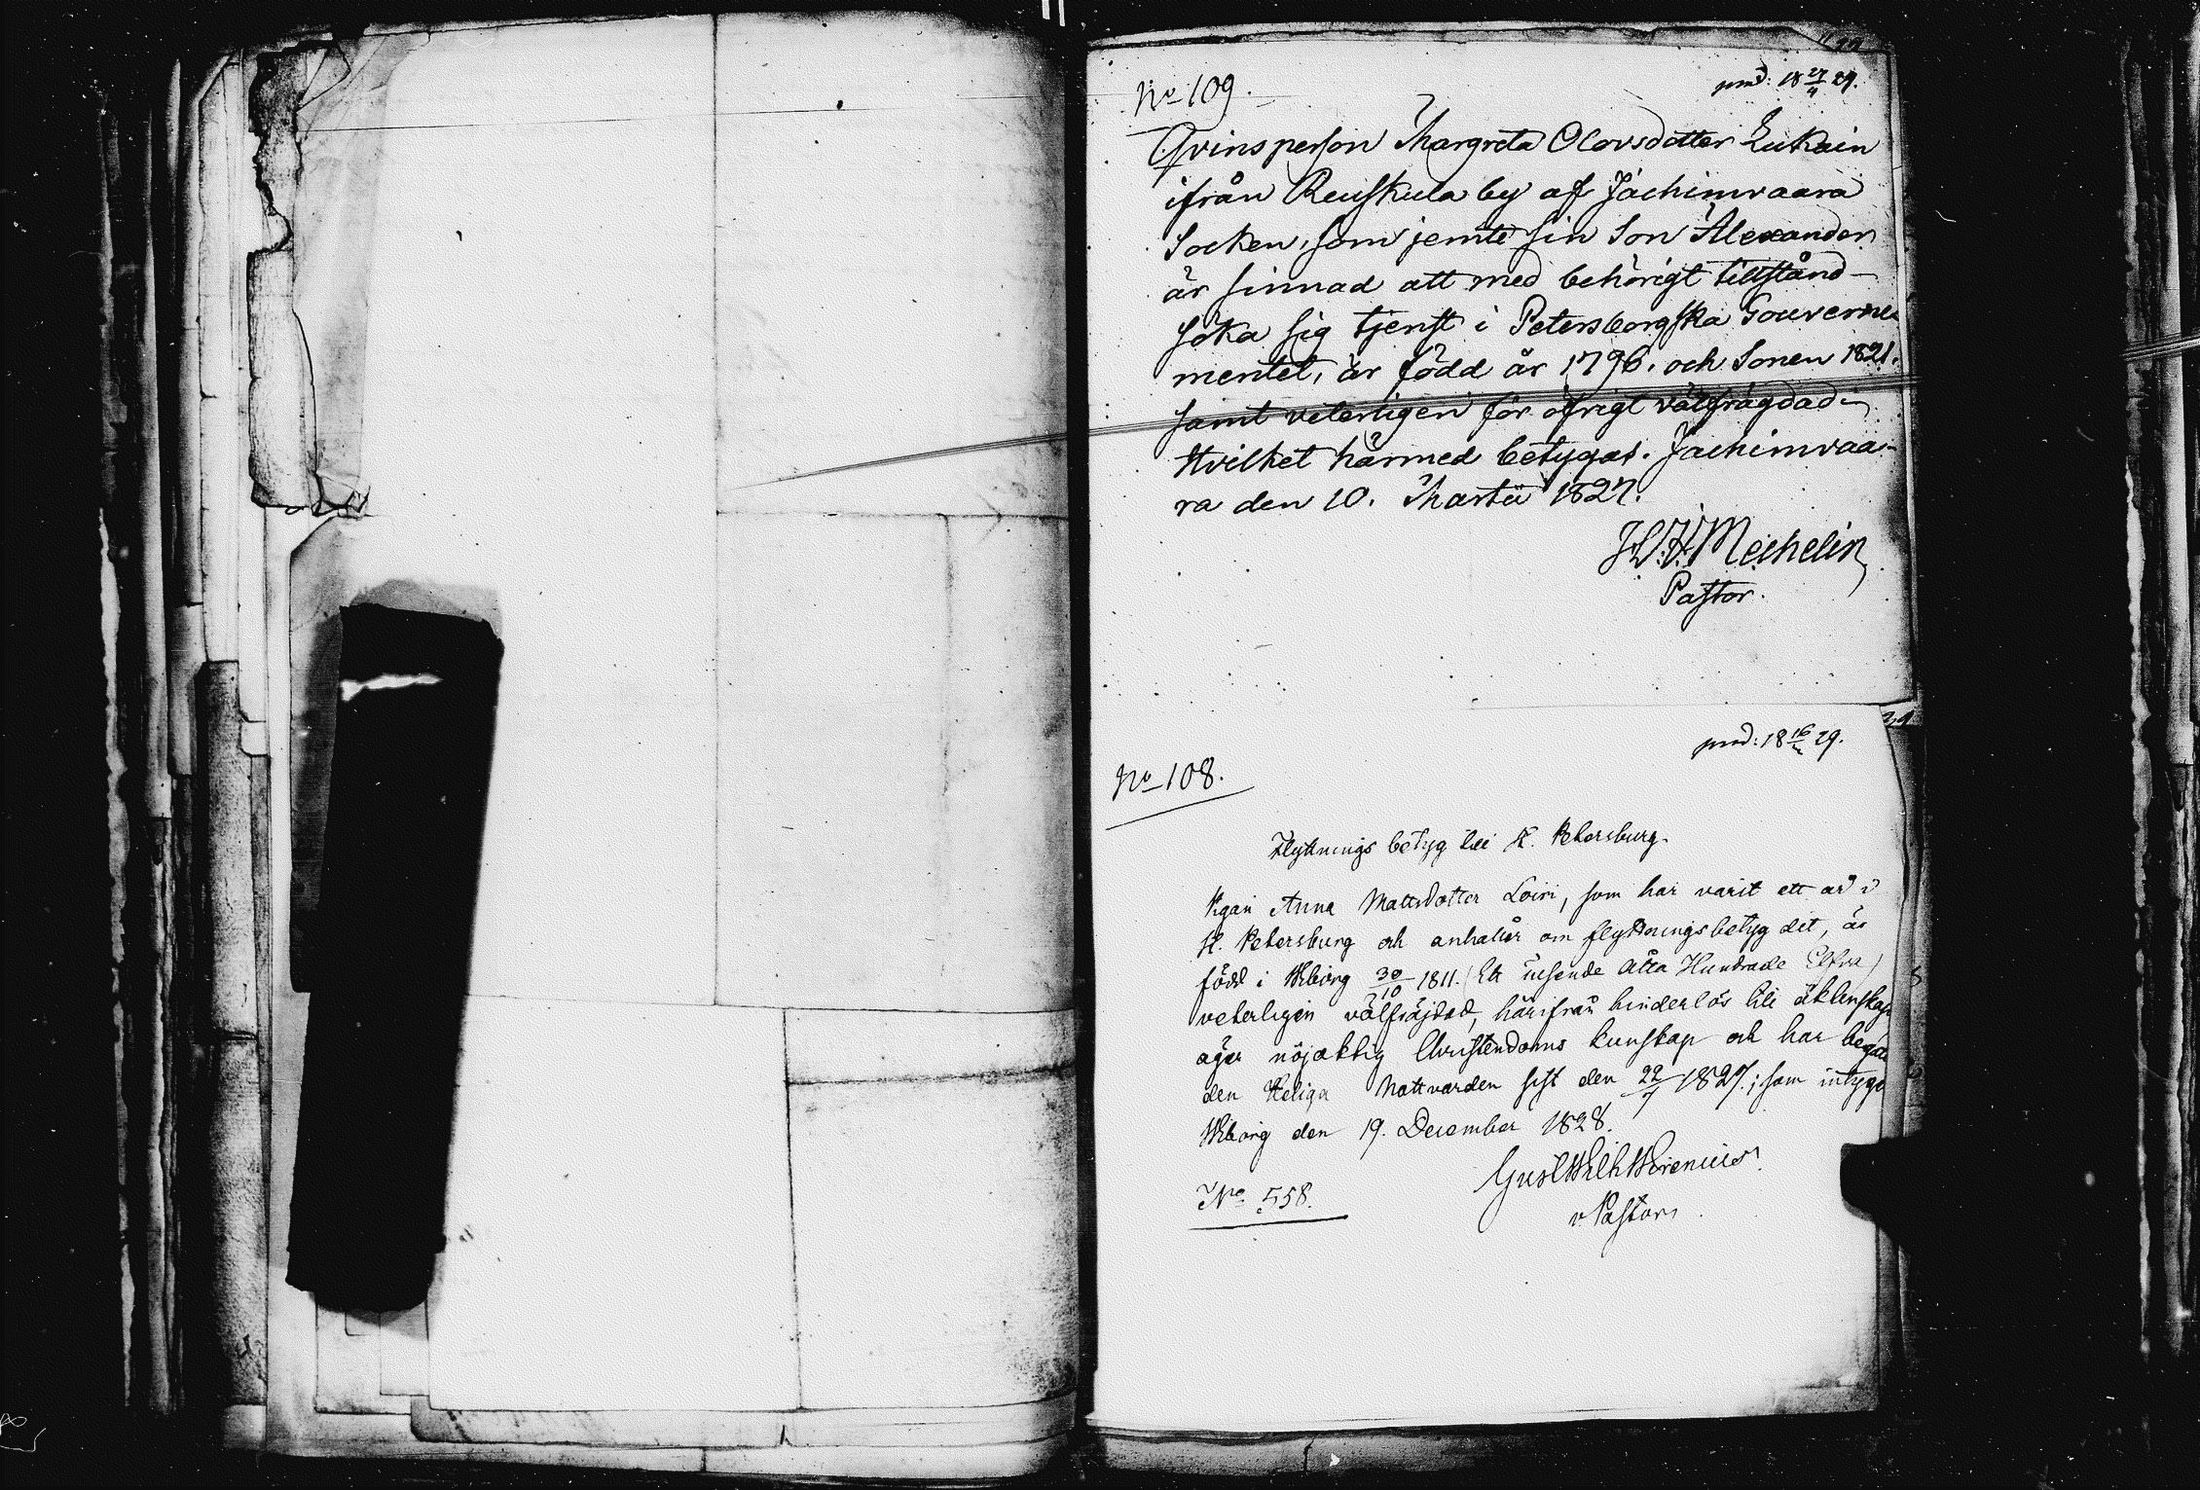 No 109.
prod: 18 27/4 29.
Qvinsperson Margreta Olovsdotter Lukain
ifrån Reuskula by af Jachimvaara
Socken, som jemte sin Son Alexander
är sinnad att med behörigt tillstånd
söka sig tjenst i Petersborgska Gouverne
mentet, är född år 1796. och Sonen 1821.
samt veterligen för öfrigt välfrägdad
Hvilket härmed betygas. Jachimvaa-
ra den 10. Martii 1827.
Mechelin
Pastor.
prod: 18 16/ 29.
No 108.
Flyttnings betyg till St. Petersburg.
Pigan Anna Mattsdotter Loiri, som har varit ett år i
St. Petersburg och anhåller om flyttningsbetyg dit, är
född i Wiborg 30/10 1811. (Ett tusende Åtta Hundrade Elfva)
veterligen välfräjdad, härifrån hinderlös till äktenskap
äger nöjaktig Christendoms kunskap och har begått
den Heliga Nattvarden sist den 22/7 1827.; som intygar
Wiborg den 19. December 1828.
Gust Wilh Wirenius
v. Pastor
No 558.